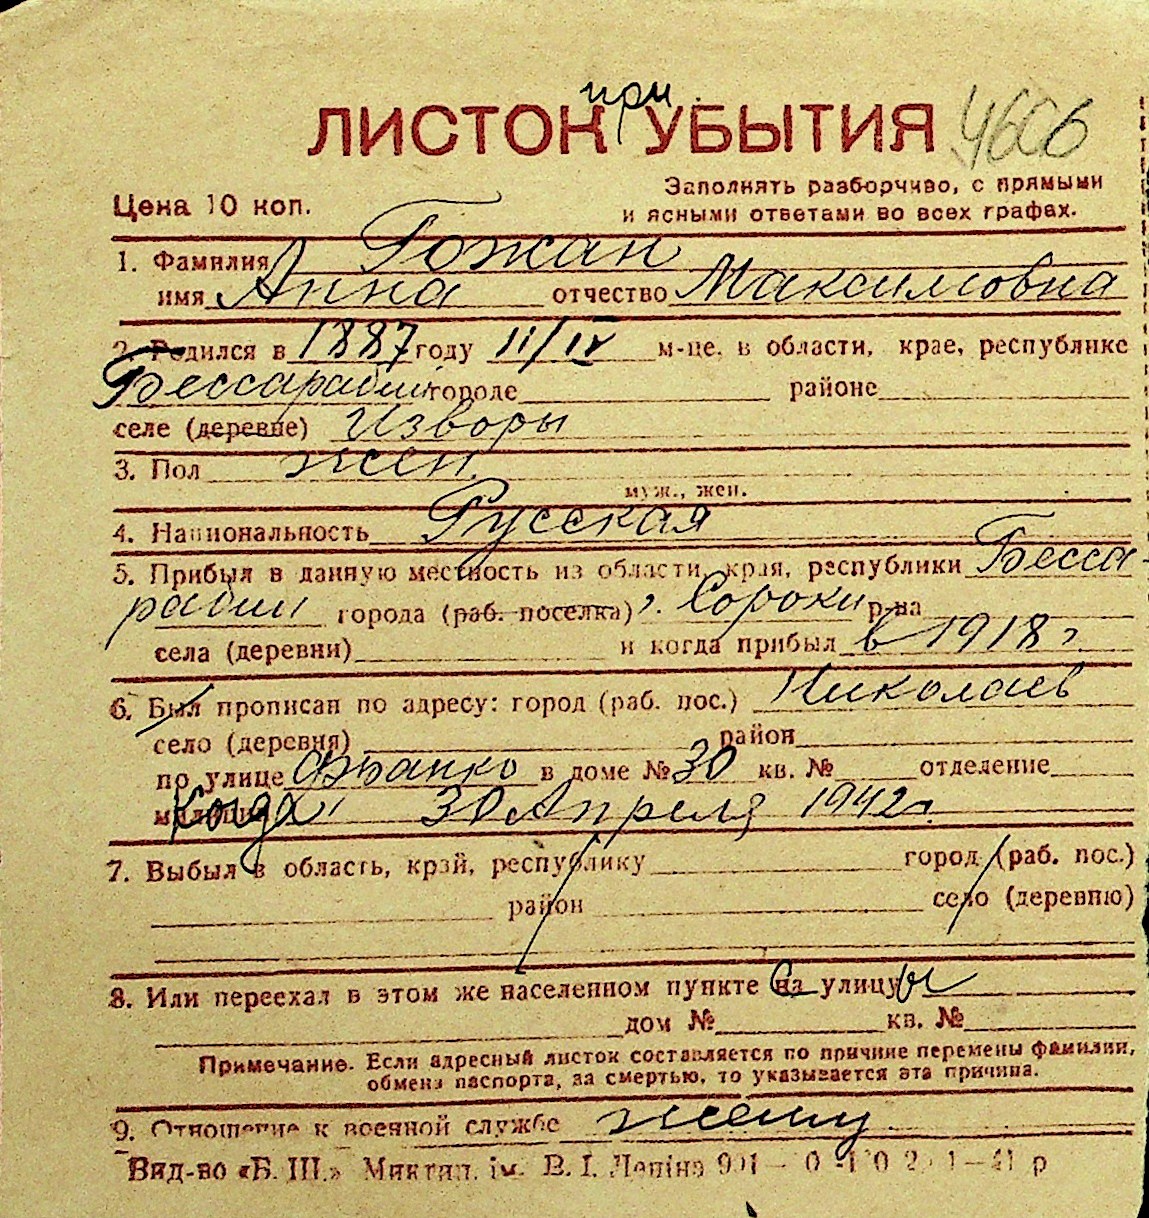 при
ЛИСТОК УБЫТИЯ 4606
Заполнять разборчиво, с прямыми
Цена 10 коп. и ясными ответами во всех графах.
1. Фамилия Гожан
имя Анна отчество Максимовна
2. Родился в 1887 году 11/IV м-це, в области, крае, республике
Бессарабии городе районе
селе (деревне) Изворы
3. Пол жен.
муж., жен.
4. Национальность Русская
5. Прибыл в данную местность из области, края, республики Бесса-
рабии города (раб. поселка) г. Сороки р-на
села (деревни) и когда прибыл в 1918 г
6. Был прописан по адресу: город (раб. пос.) Николаев
село (деревня) район
по улице в доме № 30 кв. № отделение
когда 30 Апреля 1942 г.
7. Выбыл в область, край, республику город (раб. пос.)
район село (деревню)
8. Или переехал в этом же населенном пункте с улицы
дом № кв. №
Примечание. Если адресный листок составляется по причине перемены фамилии,
обмена паспорта, за смертью, то указывается эта причина.
9. Отношение к военной службе
Вид-во «Б. Ш.» Миктип. ім. В. І. Леніна